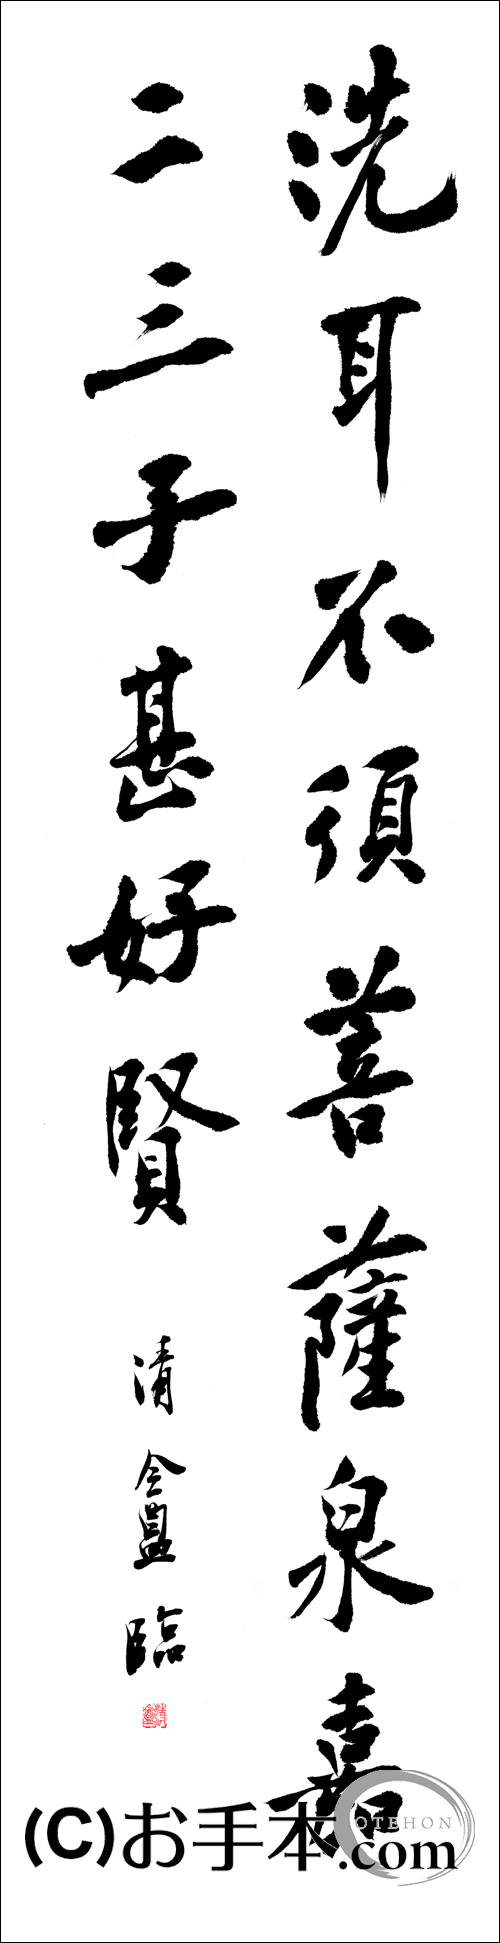 洗耳不須菩薩泉嘉
二三子甚好賢
清盦臨
(C)お手本.com
OTEHON